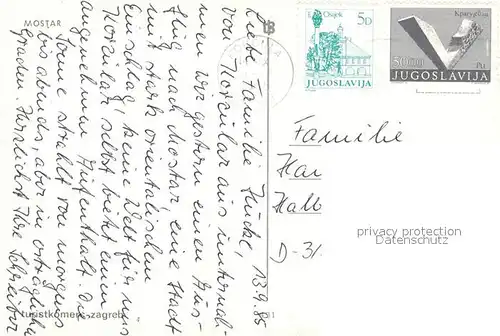 MOSTAR
Osijek
5D
JUGOSLAVIJA
Kragujevac
JUGOSLAVIJA
Liebe Familie 13.9.85
von Korčula aus unternah-
men wir gestern einen Aus-
flug nach Mostar eine Stadt
mit stark orientalischem
Einschlag, keine Welt für uns
Korčula selbst bietet einen
angenehmen Aufenthalt. Die
Sonne strahlt von morgens
bis abends, aber in erträglichen
Graden. Herzlichst Ihre Schreiber
Familie
Hall
D-31
privacy protection
Datenschutz
turistkomerc-zagreb